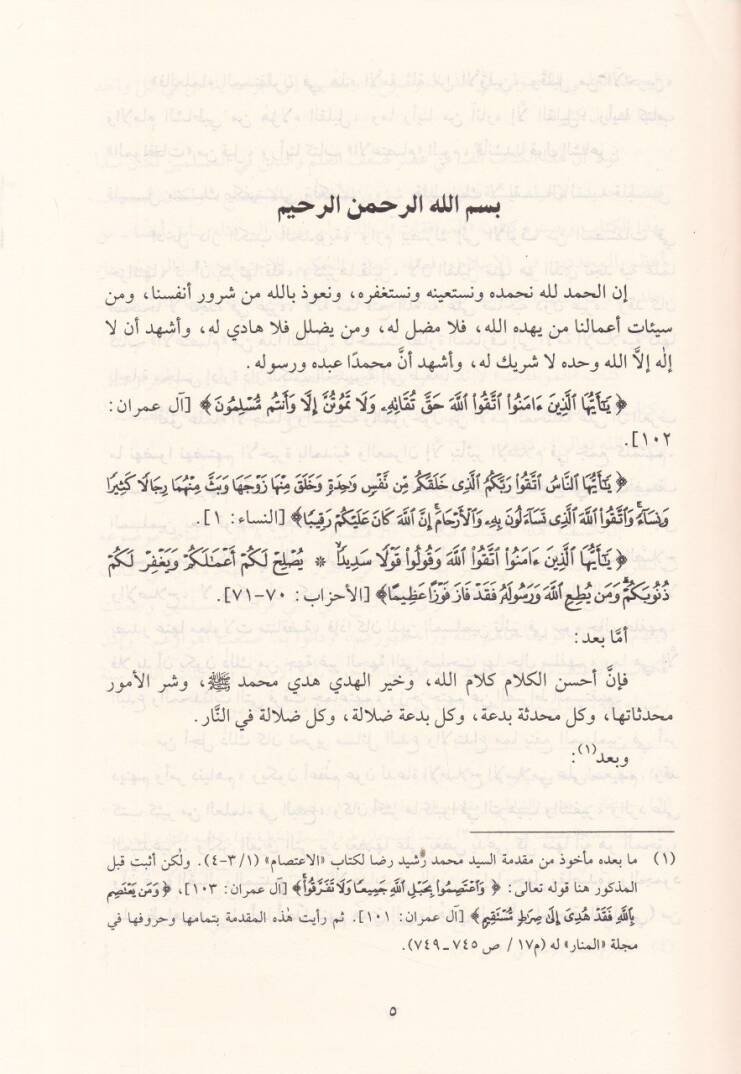 بسم الله الرحمن الرحيم
إن الحمد لله نحمده ونستعينه ونستغفره، ونعوذ بالله من شرور أنفسنا، ومن
سيئات أعمالنا من يهده الله، فلا مضل له، ومن يضلل فلا هادي له، وأشهد أن لا
إلٰه إلاَّ الله وحده لا شريك له، وأشهد أنَّ محمدًا عبده ورسوله.
﴿ يَٰٓأَيُّهَا ٱلَّذِينَ ءَامَنُوا۟ ٱتَّقُوا۟ ٱللَّهَ حَقَّ تُقَاتِهِۦ وَلَا تَمُوتُنَّ إِلَّا وَأَنتُم مُّسْلِمُونَ ﴾ [آل عمران:
١٠٢].
﴿ يَٰٓأَيُّهَا ٱلنَّاسُ ٱتَّقُوا۟ رَبَّكُمُ ٱلَّذِى خَلَقَكُم مِّن نَّفْسٍ وَٰحِدَةٍ وَخَلَقَ مِنْهَا زَوْجَهَا وَبَثَّ مِنْهُمَا رِجَالًا كَثِيرًا
وَنِسَآءً ۚ وَٱتَّقُوا۟ ٱللَّهَ ٱلَّذِى تَسَآءَلُونَ بِهِۦ وَٱلْأَرْحَامَ ۚ إِنَّ ٱللَّهَ كَانَ عَلَيْكُمْ رَقِيبًا ﴾ [النساء: ١].
﴿ يَٰٓأَيُّهَا ٱلَّذِينَ ءَامَنُوا۟ ٱتَّقُوا۟ ٱللَّهَ وَقُولُوا۟ قَوْلًا سَدِيدًا * يُصْلِحْ لَكُمْ أَعْمَٰلَكُمْ وَيَغْفِرْ لَكُمْ
ذُنُوبَكُمْ ۗ وَمَن يُطِعِ ٱللَّهَ وَرَسُولَهُۥ فَقَدْ فَازَ فَوْزًا عَظِيمًا ﴾ [الأحزاب: ٧٠-٧١].
أمَّا بعد:
فإنَّ أحسن الكلام كلام الله، وخير الهدي هدي محمد ﷺ، وشر الأمور
محدثاتها، وكل محدثة بدعة، وكل بدعة ضلالة، وكل ضلالة في النَّار.
وبعد(١):
(١) ما بعده مأخوذ من مقدمة السيد محمد رشيد رضا لكتاب «الاعتصام» (١/ ٣-٤). ولٰكن أثبت قبل
المذكور هنا قوله تعالى: ﴿ وَٱعْتَصِمُوا۟ بِحَبْلِ ٱللَّهِ جَمِيعًا وَلَا تَفَرَّقُوا۟ ﴾ [آل عمران: ١٠٣]، ﴿ وَمَن يَعْتَصِم
بِٱللَّهِ فَقَدْ هُدِىَ إِلَىٰ صِرَٰطٍ مُّسْتَقِيمٍ ﴾ [آل عمران: ١٠١]. ثم رأيت هٰذه المقدمة بتمامها وحروفها في
مجلة «المنار» له (م١٧/ ص ٧٤٥ ـ ٧٤٩).
٥